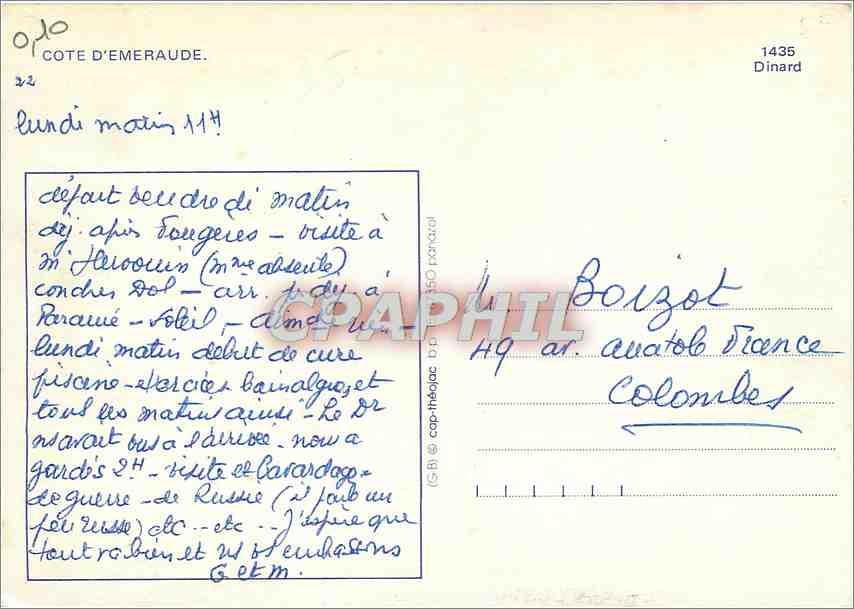 0,10
COTE D'EMERAUDE.
1435
Dinard
22
lundi matin 11H
départ vendredi matin
déj. après Fougères - visite à
Mr (Mme absente)
Dol - arr. à
Paramé - soleil -
lundi matin début de cure
piscine - exercices et
tous les matins ainsi - Le Dr
ns avait vus à l'arrivée - nous a
gardés 2H - visite et bavardage
de guerre - de Russie (il parle un
peu russe) etc -- etc -- J'espère que
tout va bien et ns vs embrassons
G et M.
CPAPHIL
(G B) © cap-théojac
panazol
M. Boizot
49 av. anatole France
Colombes